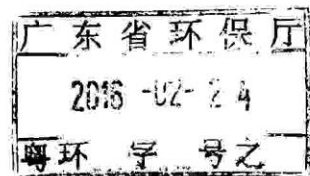 广东省环保厅
2016 -02- 24
粤环 字 号之